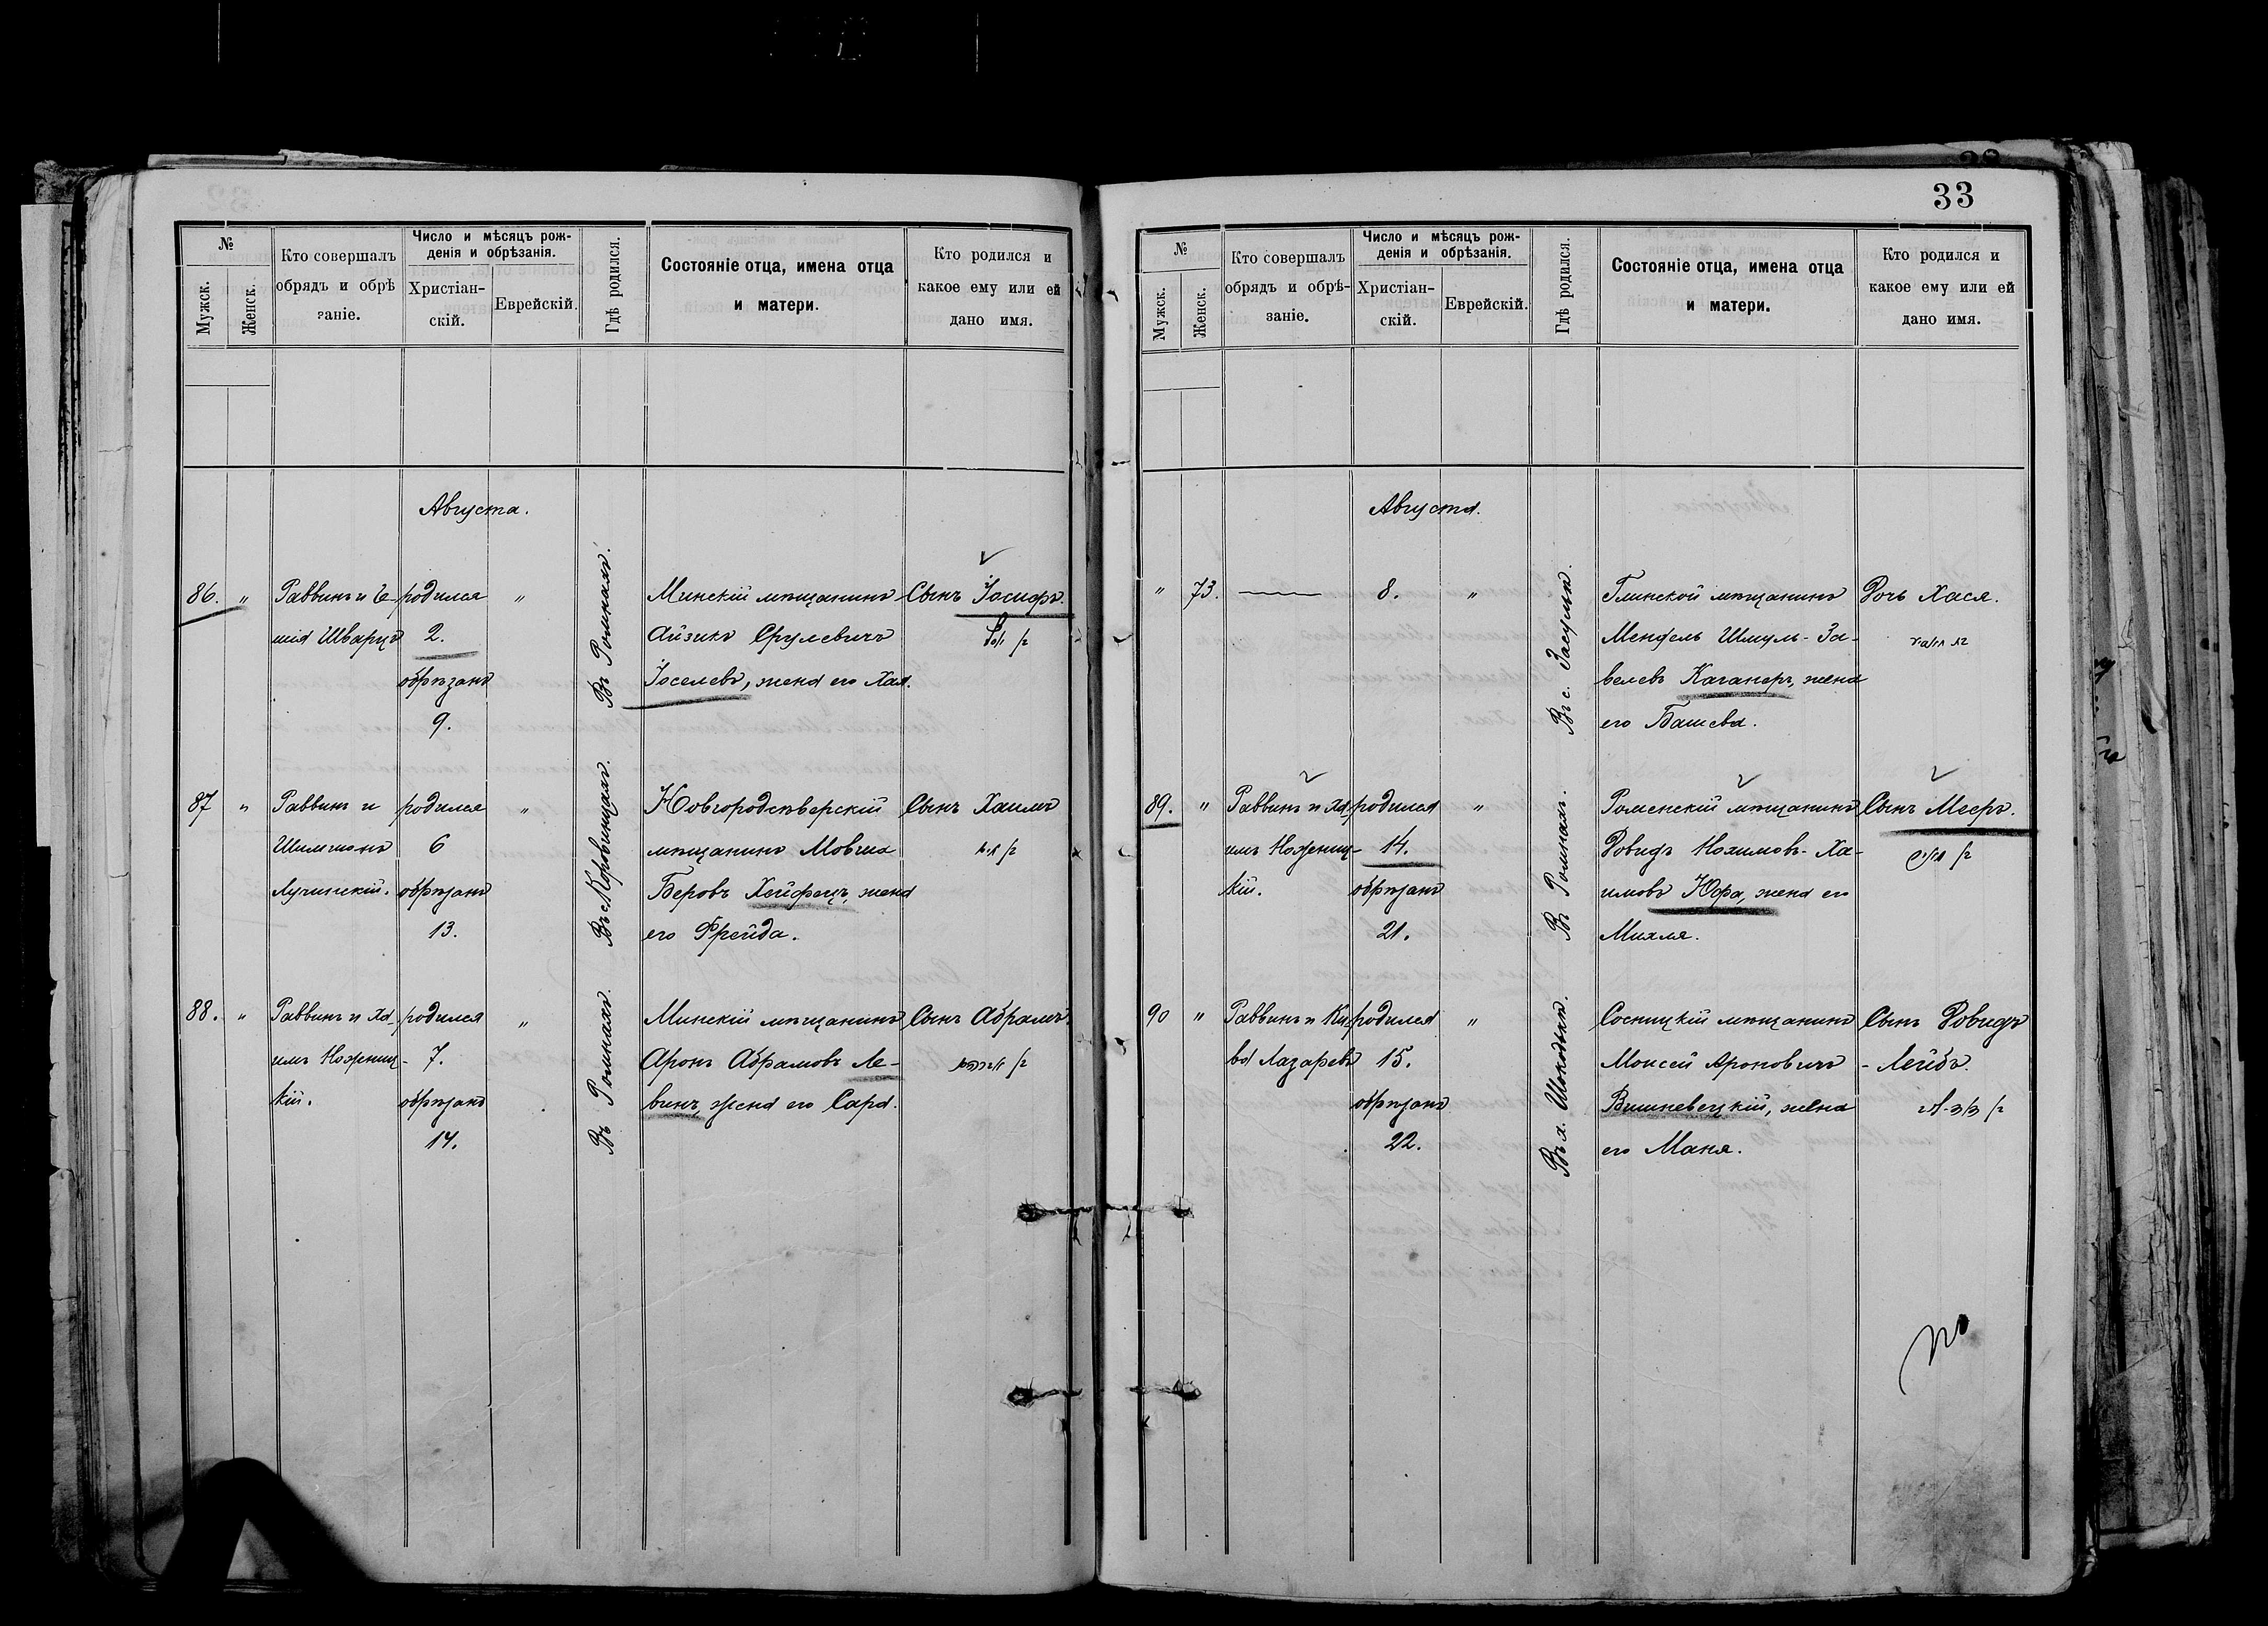 33
№
Мужск.
Женск.
Кто совершалъ
обрядъ и обрѣ
заніе.
Число и мѣсяцъ рож-
денія и обрѣзанія.
Христіан-
скій.
Еврейскій.
Гдѣ родился.
Состояніе отца, имена отца
и матери.
Кто родился и
какое ему или ей
дано имя.
Августа.
86. „
Раввинъ и
Шварцъ
родился
2.
обрѣзанъ
9.
„
Въ Ромнахъ.
Минскій мѣщанинъ
Айзикъ Срулевичъ
Іоселевъ, жена его Хая.
Сынъ Іосифъ.
87 „
Раввинъ и
Шимшонъ
Лучинскій.
родился
6
обрѣзанъ
13.
„
Въ с. Коровинцахъ.
Новгородсѣверскій
мѣщанинъ Мовша
Беровъ Хейфецъ, жена
его Фрейда.
Сынъ Хаимъ
88. „
Раввинъ и Ха-
имъ Ножениц-
кій.
родился
7.
обрѣзанъ
14.
„
Въ Ромнахъ.
Минскій мѣщанинъ
Аронъ Абрамовъ Ле-
винъ, жена его Сара.
Сынъ Абрамъ.
№
Мужск.
Женск.
Кто совершалъ
обрядъ и обрѣ-
заніе.
Число и мѣсяцъ рож-
денія и обрѣзанія.
Христіан-
скій.
Еврейскій.
Гдѣ родился.
Состояніе отца, имена отца
и матери.
Кто родился и
какое ему или ей
дано имя.
Августа.
„ 73.
8.
„
Въ с. Засульи.
Глинской мѣщанинъ
Мендель Шмуль-За-
велевъ Каганеръ, жена
его Башева.
Дочь Хася.
89. „
Раввинъ и Ха-
имъ Ножениц-
кій.
родился
14.
обрѣзанъ
21.
„
Въ Ромнахъ.
Роменскій мѣщанинъ
Довидъ Нохимовъ-Ха-
имовъ Юфа, жена его
Михля.
Сынъ Мееръ.
90 „
Раввинъ и Ки-
ва Лазаревъ
родился
15.
обрѣзанъ
22.
„
Сосницкій мѣщанинъ
Моисей Ароновичъ
Вишневецкій, жена
его Маня.
Сынъ Довидъ
-Лейбъ.